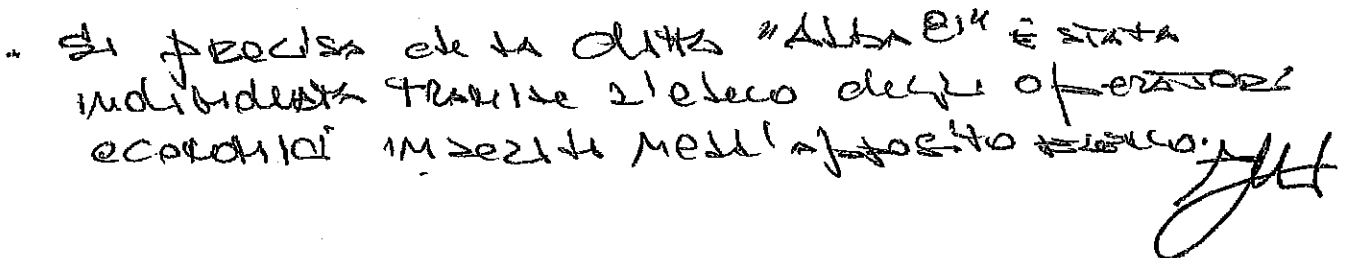 - Si precisa che la ditta "Alba" è stata
individuata tramite l'elenco degli operatori
economici inseriti nell'apposito elenco.